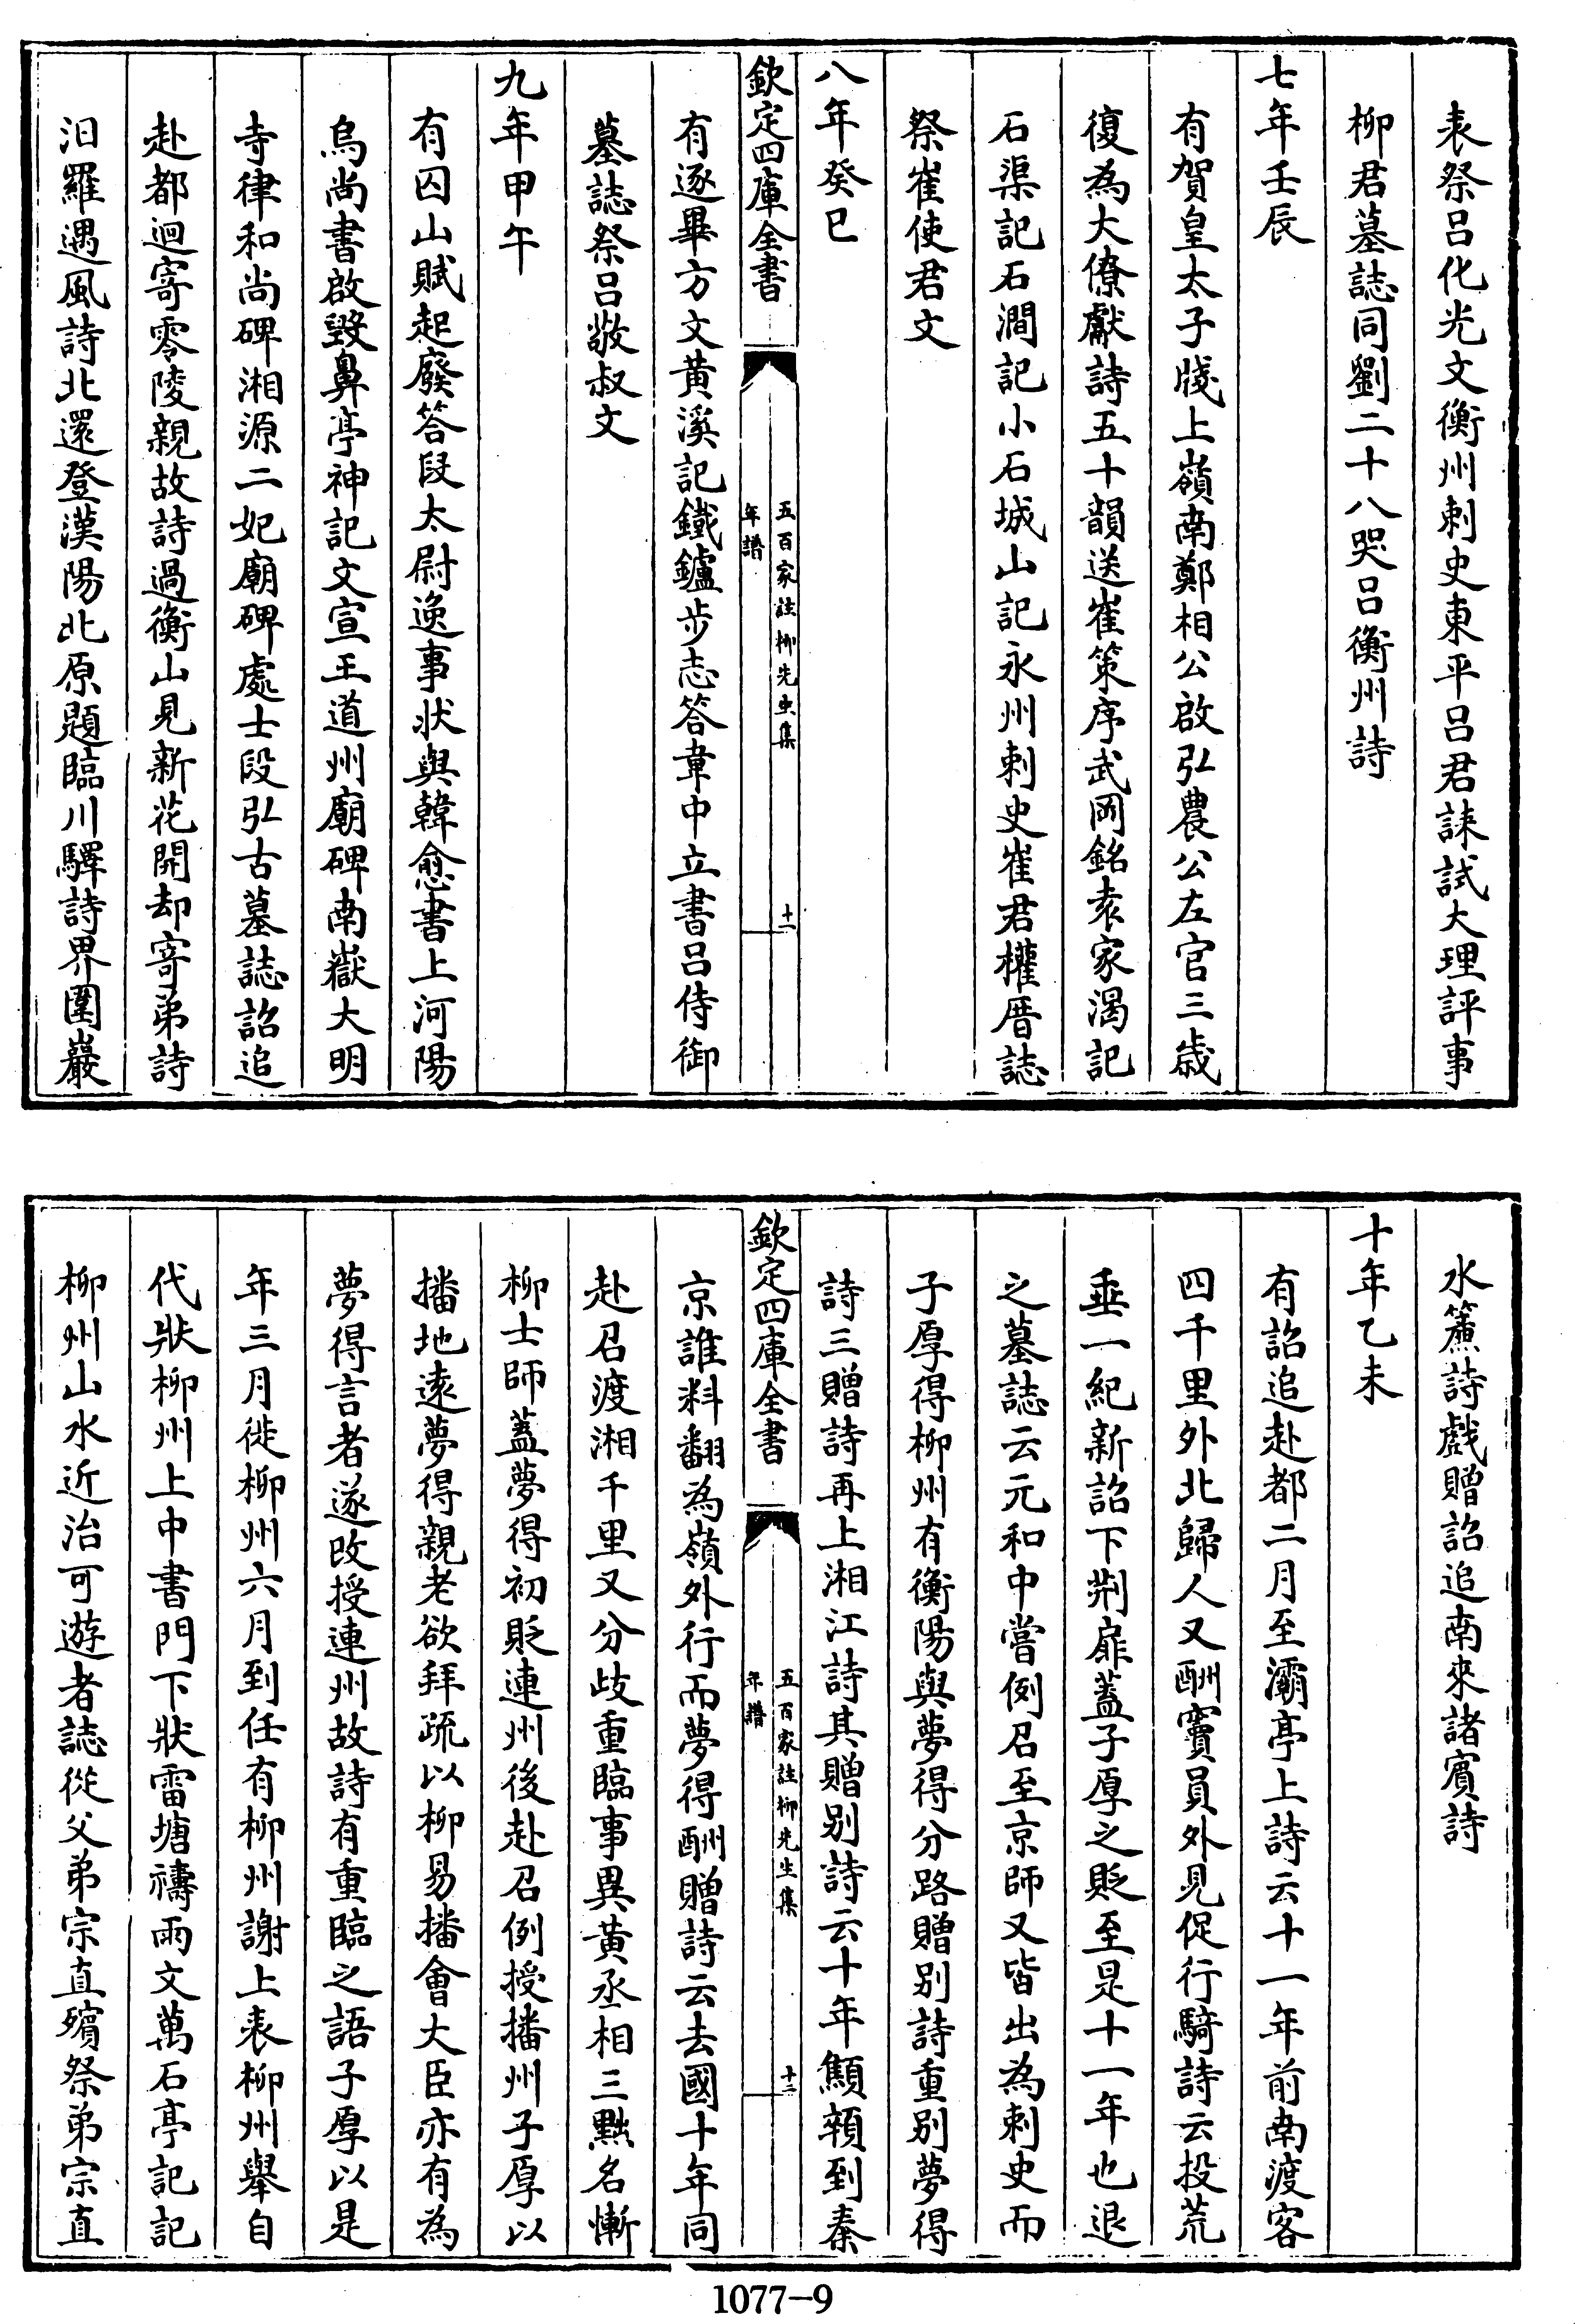 表祭呂化光文衡州刺史東平呂君誄試大理評事
柳君墓誌同劉二十八哭呂衡州詩
七年壬辰
有賀皇太子牋上嶺南鄭相公啟弘農公左官三歲
復為大僚獻詩五十韻送崔策序武岡銘袁家渴記
石渠記石澗記小石城山記永州刺史崔君權厝誌
祭崔使君文
八年癸巳
欽定四庫全書
五百家註柳先生集
年譜
十一
有逐畢方文黃溪記鐵鑪步志答韋中立書呂侍御
墓誌祭呂敬叔文
九年甲午
有囚山賦起廢答段太尉逸事狀與韓愈書上河陽
烏尚書啟毀鼻亭神記文宣王道州廟碑南嶽大明
寺律和尚碑湘源二妃廟碑處士段弘古墓誌詔追
赴都迴寄零陵親故詩過衡山見新花開却寄弟詩
汨羅遇風詩北還登漢陽北原題臨川驛詩界圍巖
水簾詩戲贈詔追南來諸賓詩
十年乙未
有詔追赴都二月至灞亭上詩云十一年前南渡客
四千里外北歸人又酬竇員外見促行騎詩云投荒
垂一紀新詔下荆扉蓋子厚之貶至是十一年也退
之墓誌云元和中嘗例召至京師又皆出為刺史而
子厚得柳州有衡陽與夢得分路贈别詩重别夢得
詩三贈詩再上湘江詩其贈别詩云十年顦顇到秦
欽定四庫全書
五百家註柳先生集
年譜
十二
京誰料翻為嶺外行而夢得酬贈詩云去國十年同
赴召渡湘千里又分歧重臨事異黃丞相三黜名慚
柳士師蓋夢得初貶連州後赴召例授播州子厚以
播地遠夢得親老欲拜疏以柳易播會大臣亦有為
夢得言者遂改授連州故詩有重臨之語子厚以是
年三月徙柳州六月到任有柳州謝上表柳州舉自
代狀柳州上中書門下狀雷塘禱雨文萬石亭記記
柳州山水近治可遊者誌從父弟宗直殯祭弟宗直
1077—9